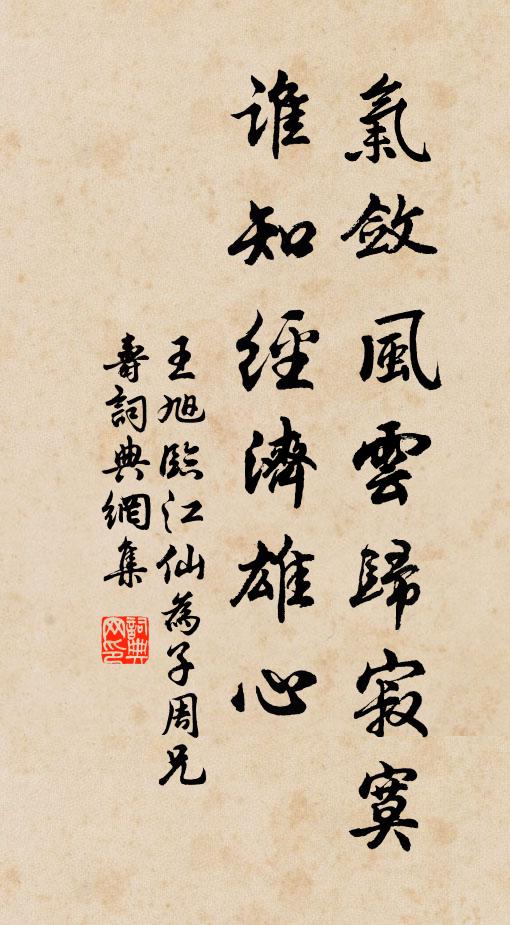 氣斂風雲歸寂寞
誰知經濟雄心
王旭臨江仙為子周兄
壽詞典網集
詞典網印